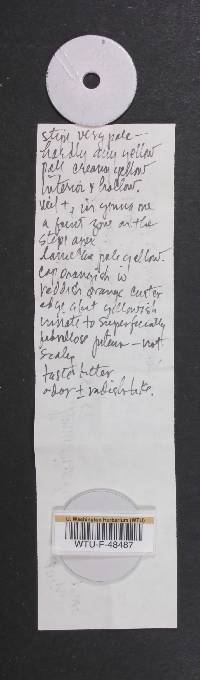 stipe very pale -
hardly any yellow
pale creamy yellow
interior & hollow.
veil +, in young one
a faint zone on the
stipe apex
lamellae pale yellow.
cap orangish w
reddish orange center
edge a bit yellowish
innate to superficially
fibrillose pileus - not
scaley
taste bitter
odor ± radish-like.
U. Washington Herbarium (WTU)
WTU-F-48487